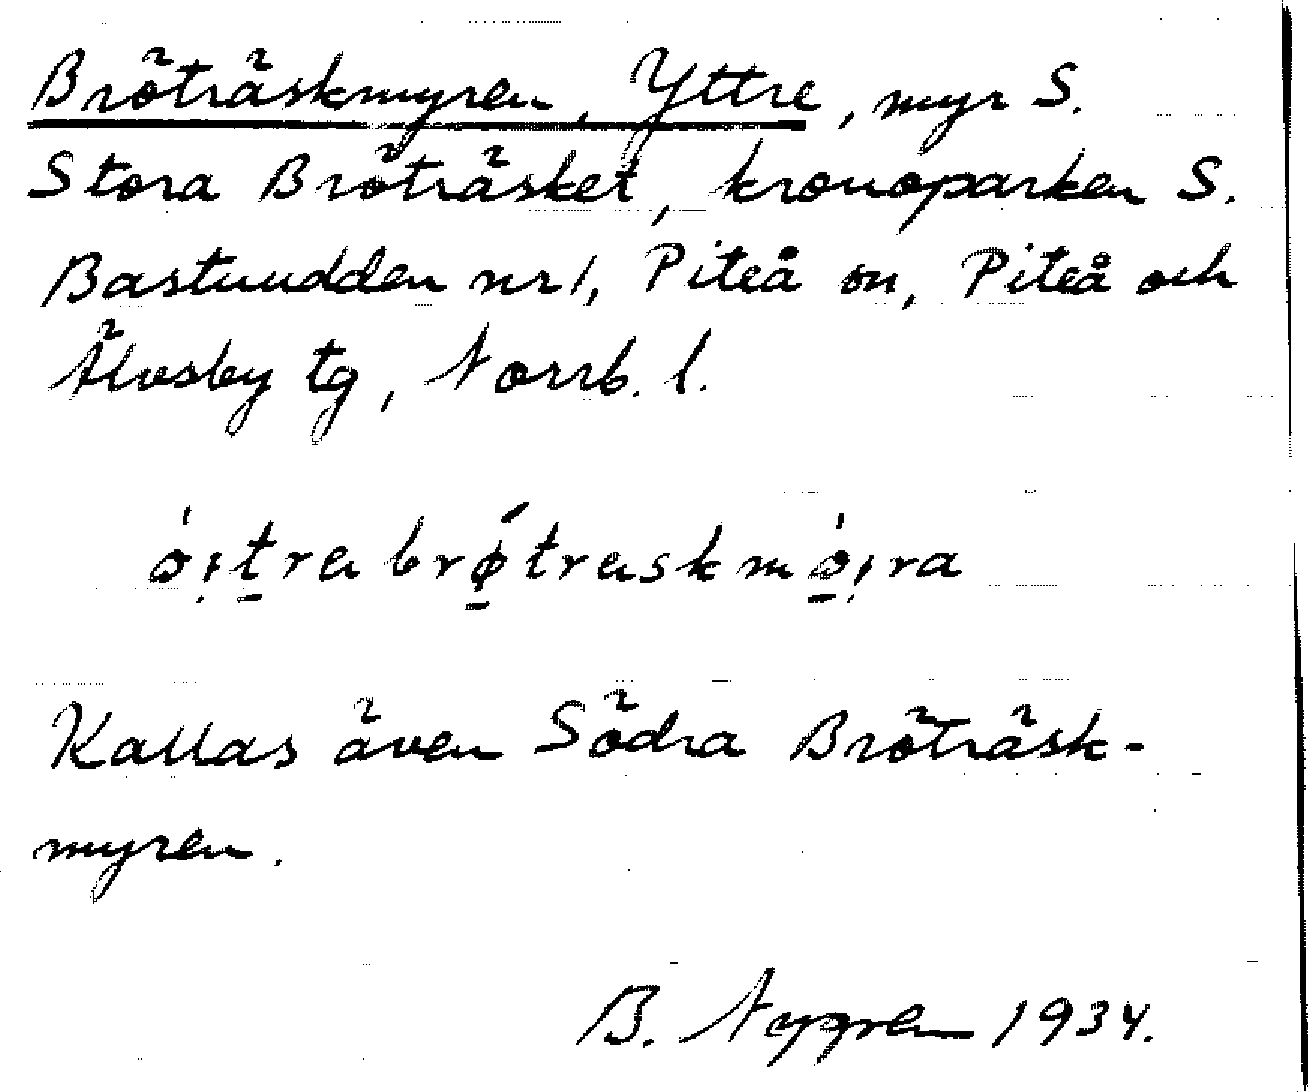 Bröträskmyren, Yttre, myr S.
Stora Bröträsket, kronoparken S.
Bastuudden nr 1, Piteå sn, Piteå och
Älvsby tg, Norrb. l.
Kallas även Södra Bröträsk-
myren.
B. Nygren 1934.